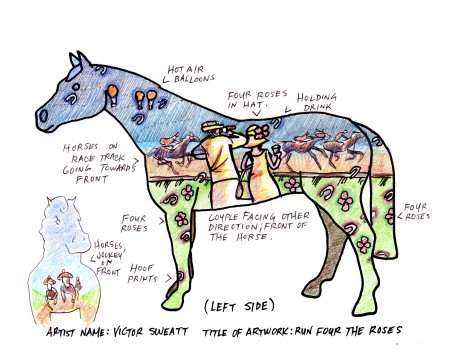 HOT AIR
BALLOONS
FOUR ROSES
IN HAT.
HOLDING
DRINK
HORSES ON
RACE TRACK
GOING TOWARDS
FRONT
FOUR
ROSES
COUPLE FACING OTHER
DIRECTION; FRONT OF
THE HORSE.
FOUR
ROSES
HORSES,
JOCKEY
ON
FRONT
HOOF
PRINTS
(LEFT SIDE)
ARTIST NAME: VICTOR SWEATT TITLE OF ARTWORK: RUN FOUR THE ROSES